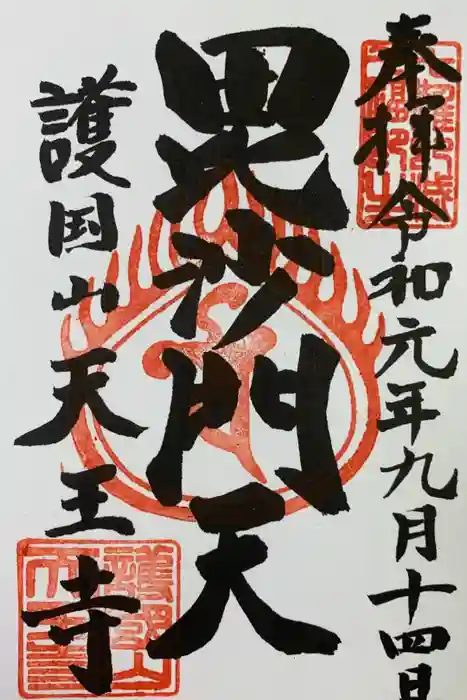 奉拝 令和元年九月十四日
毘沙門天
護国山天王寺